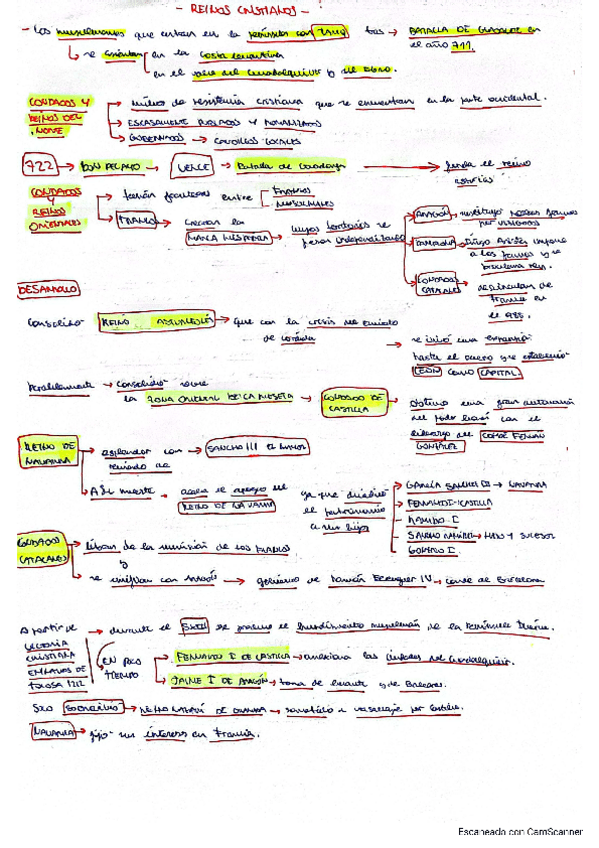 - REINOS CRISTIANOS -
- Los musulmanes que entran en la península con Tariq tras → BATALLA DE GUADALETE en el año 711.
↳ se asientan en la costa levantina
en el valle del Guadalquivir y el Ebro.
CONDADOS Y REINOS DEL NORTE
→ núcleos de resistencia cristiana que se encuentran en la parte occidental.
→ ESCASAMENTE POBLADOS Y ROMANIZADOS
→ GOBERNADOS → CAUDILLOS LOCALES
722 → DON PELAYO → VENCE → Batalla de Covadonga → funda el reino
CONDADOS Y REINOS ORIENTALES
→ entre FRANCOS MUSULMANES
→ FRANCOS → crearon la MARCA HISPÁNICA → cuyos territorios se independizando
→ ARAGÓN →
→ PAMPLONA → Íñigo Arista
→ CONDADOS CATALANES → desvinculan de Francia en el
DESARROLLO
Consolidó REINO ASTURLEONÉS → que con la crisis del emirato de Córdoba
→ se inició una expansión hasta el Duero y se estableció LEÓN como CAPITAL.
Paralelamente → consolidó sobre la ZONA ORIENTAL DE LA MESETA → CONDADO DE CASTILLA
→ obtuvo una gran autonomía del poder leonés con el liderazgo del CONDE FERNÁN GONZÁLEZ
REINO DE NAVARRA
→ esplendor con reinado de → SANCHO III EL MAYOR
→ A SU muerte → acaba el apogeo del REINO DE NAVARRA
ya que dividió el patrimonio a sus hijos
→ GARCÍA SÁNCHEZ III → NAVARRA
→ FERNANDO I - CASTILLA
→ RAMIRO I
→ SANCHO RAMÍREZ → HIJO Y SUCESOR
→ GONZALO I.
CONDADOS CATALANES
→ liberan de la sumisión de los FRANCOS
y
→ se unifican con Aragón → gobierno de Ramón Berenguer IV → conde de Barcelona
A partir de VICTORIA CRISTIANA EN NAVAS DE TOLOSA 1212
→ durante el SXIII se produce el hundimiento musulmán de la Península Ibérica.
EN POCO TIEMPO
→ FERNANDO I DE CASTILLA → las ciudades del Guadalquivir.
→ JAIME I DE ARAGÓN → toma de levante y de Baleares.
→ REINO NAZARÍ DE GRANADA → sometido a vasallaje por Castilla.
NAVARRA → fijó su interés en Francia.
Escaneado con CamScanner